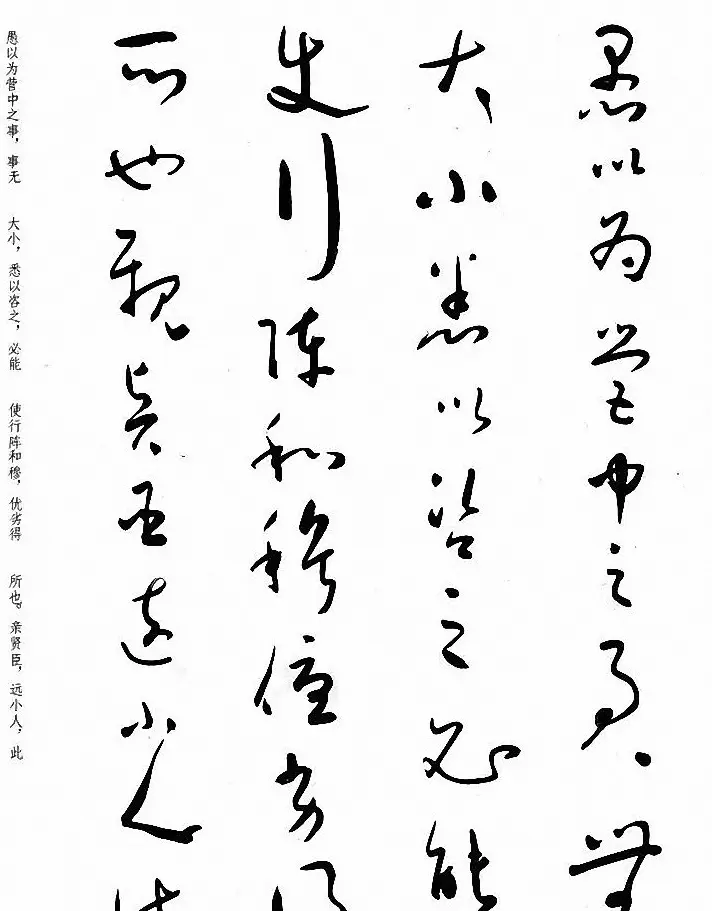 愚以為營中之事、無
大小悉以咨之必能
使行陣和穆優劣得
所也親賢臣遠小人此
愚以为营中之事，事无 大小，悉以咨之，必能 使行阵和穆，优劣得 所也。亲贤臣，远小人，此